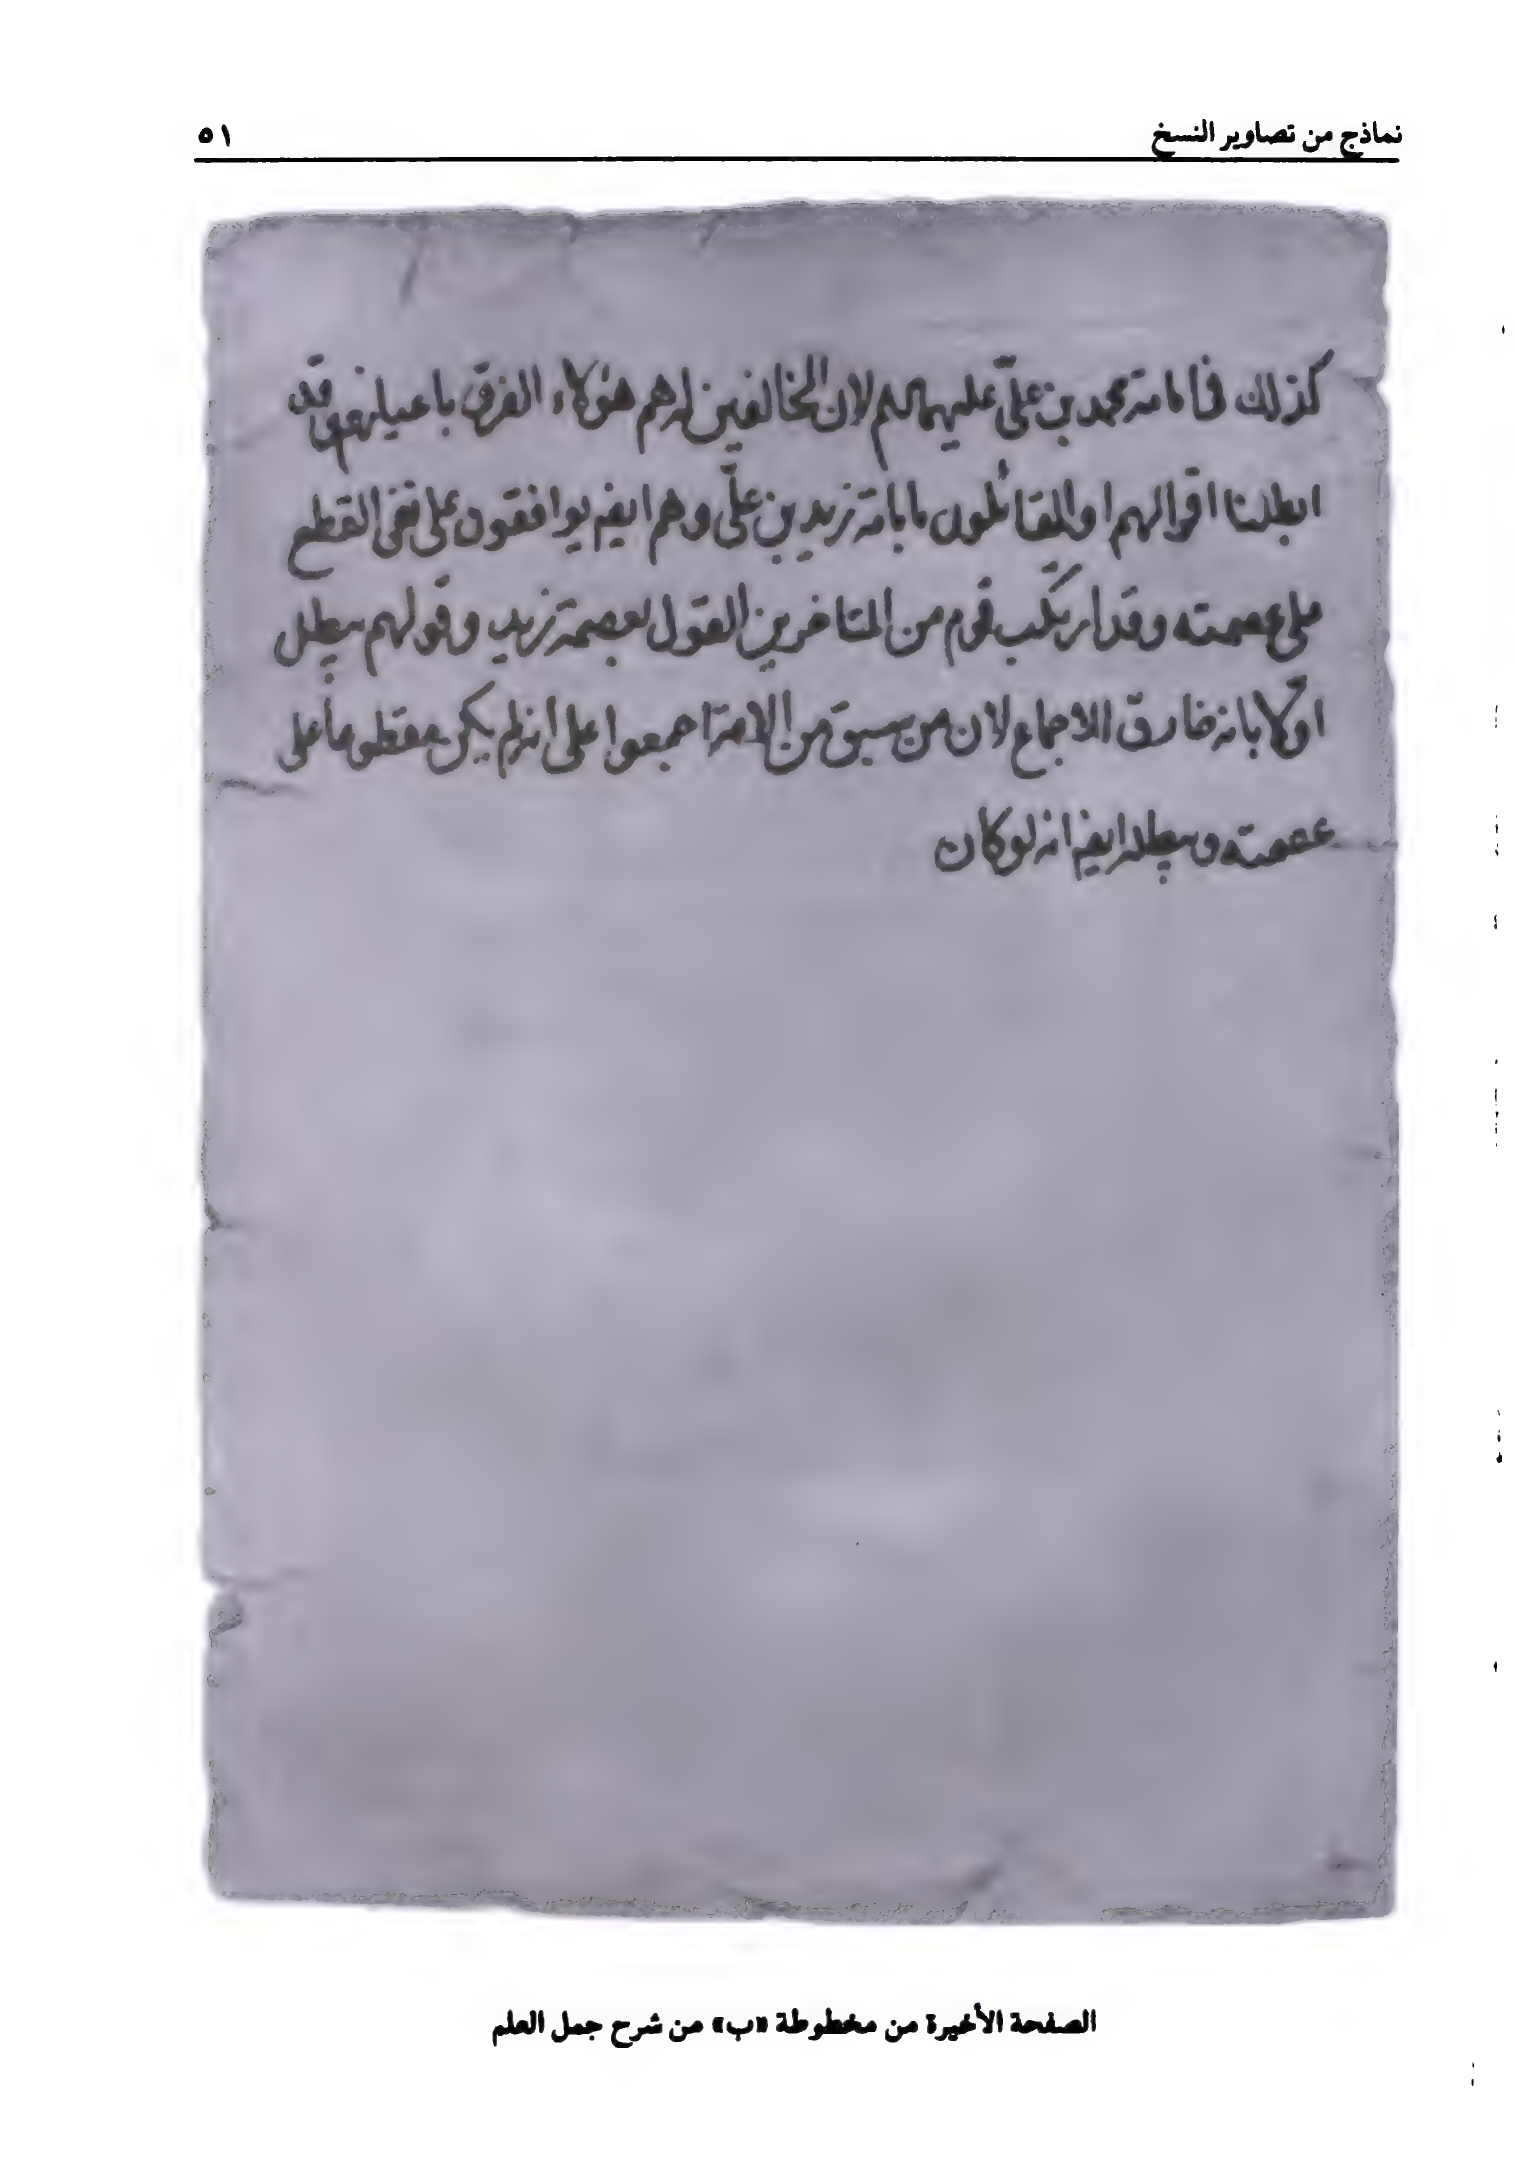 نماذج من تصاوير النسخ ٥١
كذلك فى امامة محمد بن علىّ عليهما لان المخالفين لهم هؤلاء الفرق باعيانهم وقد
ابطلنا اقوالهم او القائلون بامامة زيد بن علىّ وهم ايضا يوافقون على نفى القطع
على عصمته وقد ارتكب قوم من المتاخرين القول بعصمة زيد وقولهم يبطل
اولا بانه خارق الاجماع لان من سبق من الامة اجمعوا على انه لم يكن مقطوعا على
عصمته ويبطله ايضا انه لو كان
الصفحة الأخيرة من مخطوطة «ب» من شرح جمل العلم